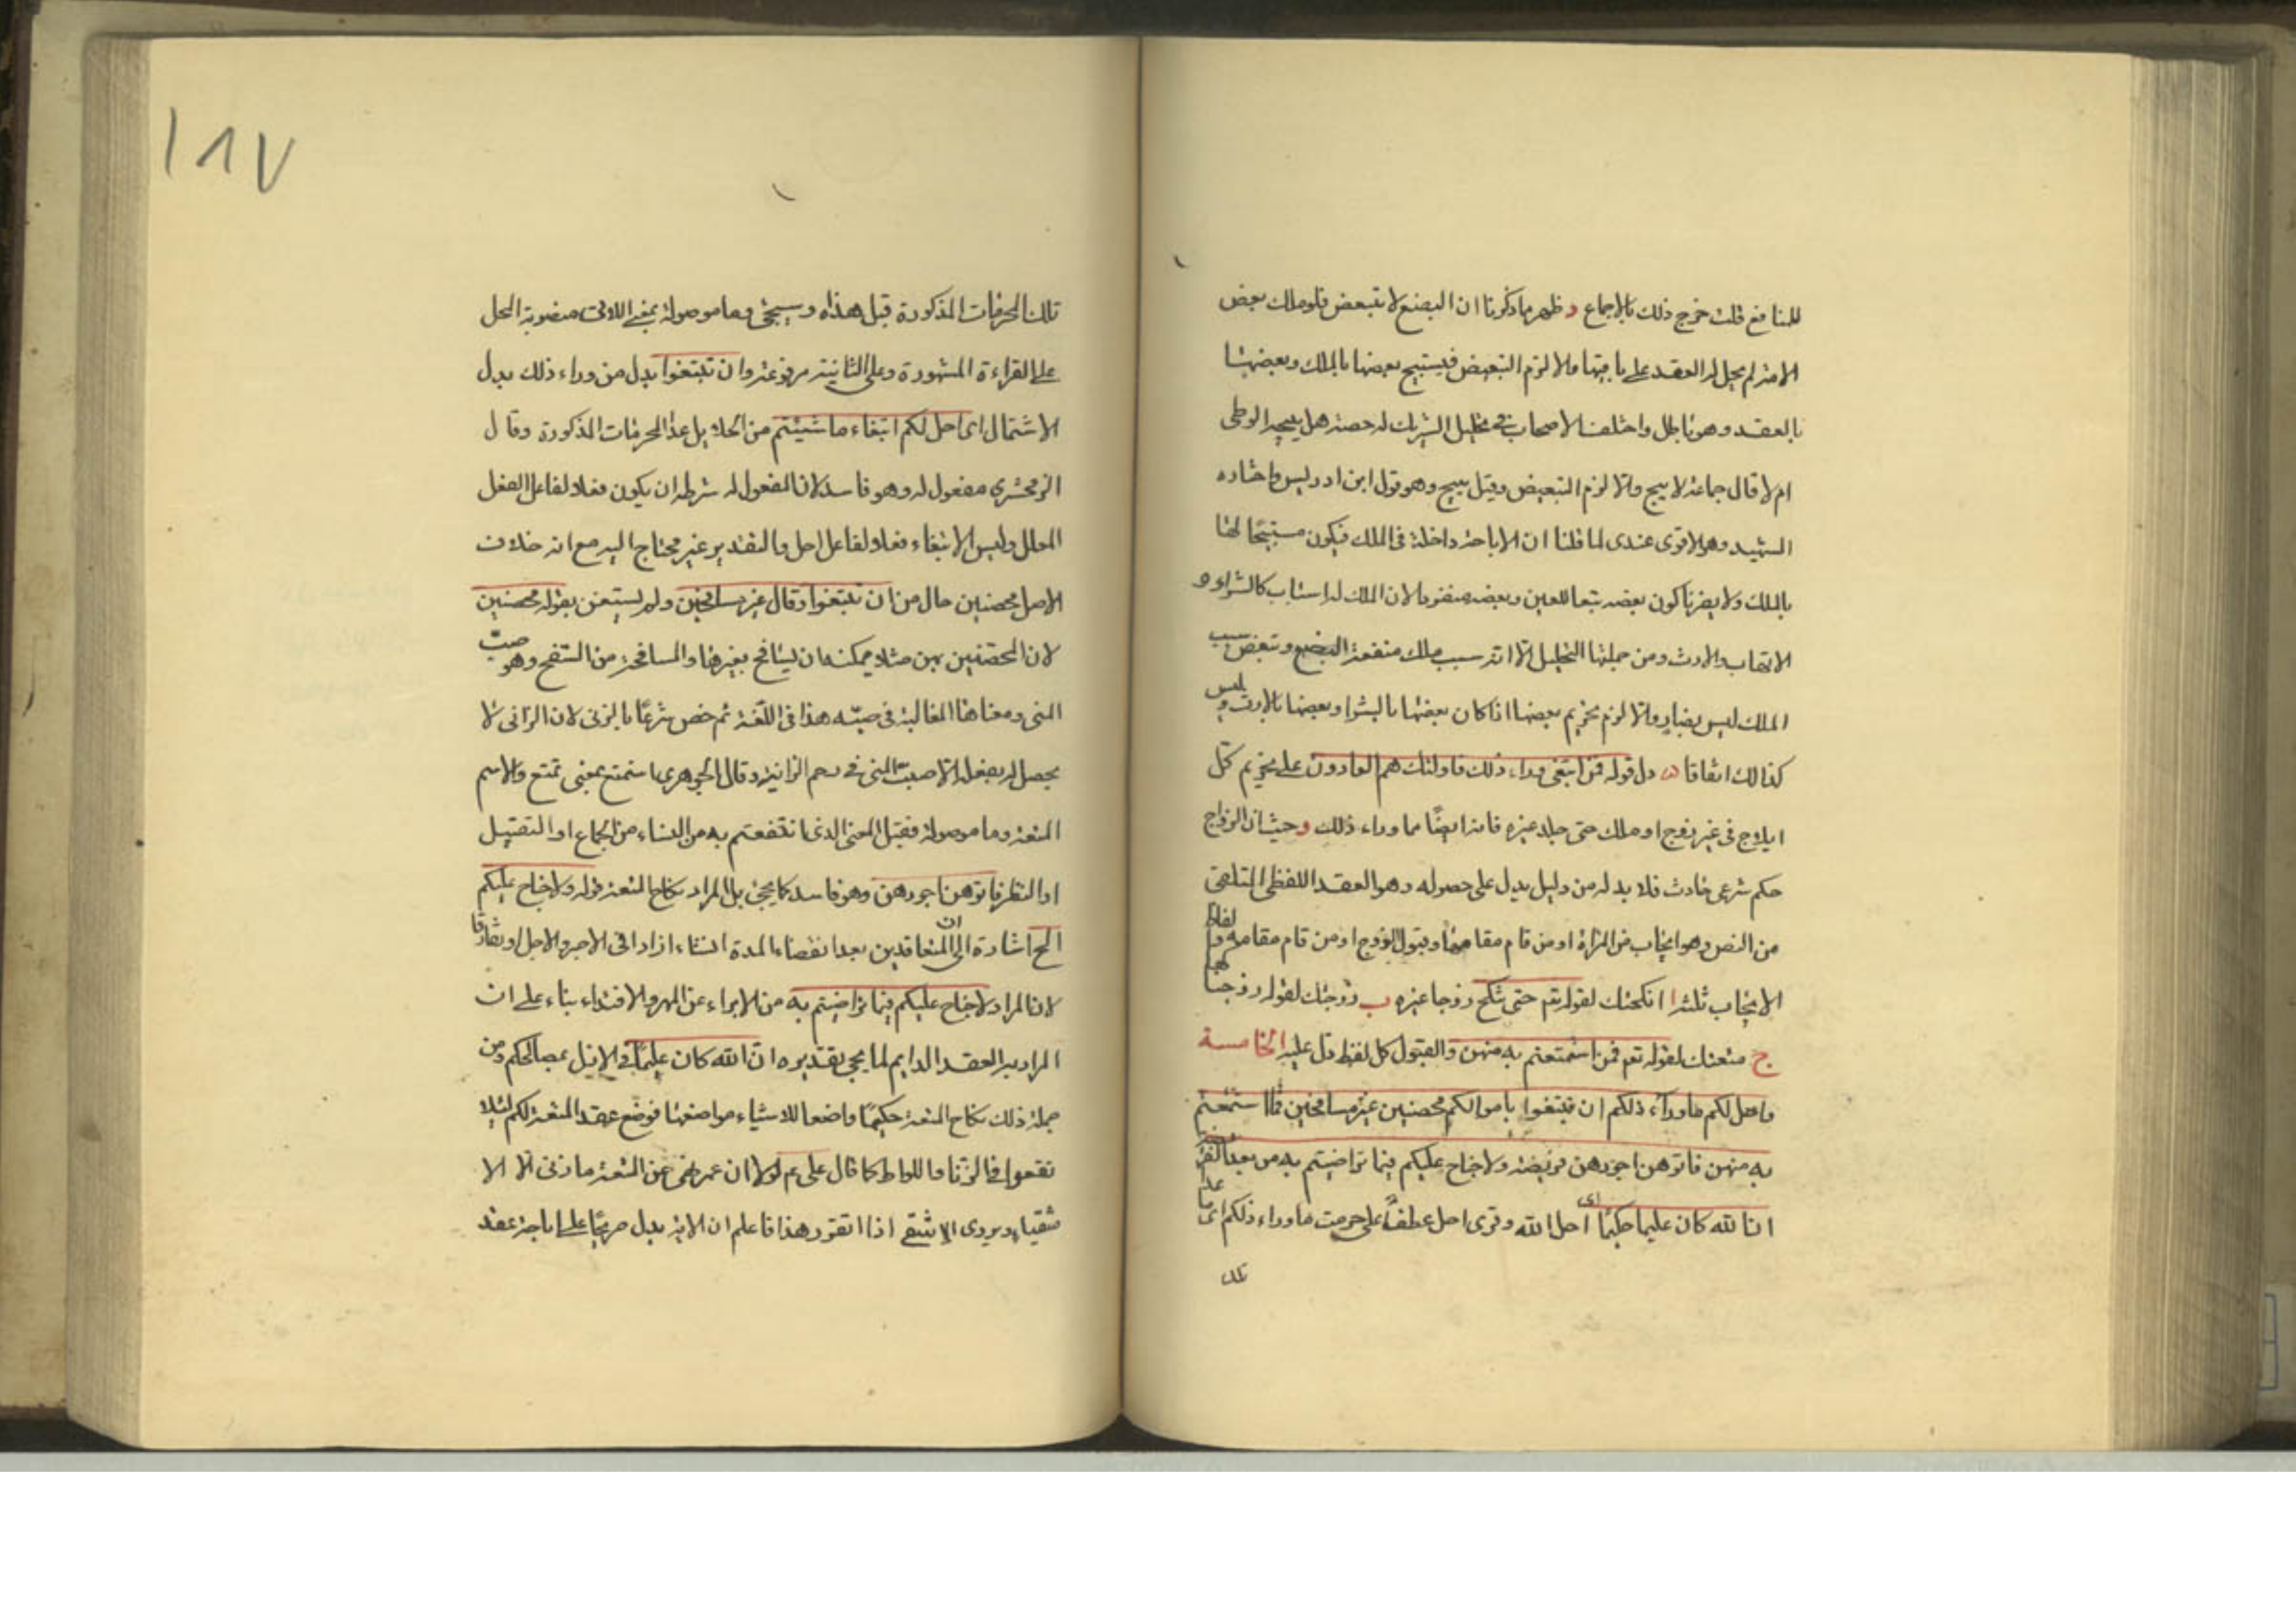 للمنافع قلت خرج ذلك بالاجماع د ظهر مما ذكرنا ان البضع لا يتبعض فلو ملك بعض
الامة لم يحل له العقد على باقيها والا لزم التبعيض فيستبيح بعضها بالملك وبعضها
بالعقد وهو باطل واختلف الاصحاب في تحليل الشريك له حصته هل يبيحه الوطى
ام لا قال جماعة لا يبيح والا لزم التبعيض وقيل يبيح وهو قول ابن ادريس واختاره
الشهيد وهو الاقوى عندى لما قلنا ان الاباحة داخلة فى الملك فيكون مستبيحا لها
بالملك ولا يضرنا كون بعضه تبعا للعين وبعضه منفردا لان الملك له اسباب كالشراء و
الاتهاب والارث ومن جملتها التحليل الا انه سبب ملك منفعة البضع وتبعض سبب
الملك ليس بضاير والا لزم تحريم بعضها اذا كان بعضها بالشرا وبعضها بالارث وليس
كذالك اتفاقا ه دل قوله فمن ابتغى وراء ذلك فاولئك هم العادون على تحريم كل
ايلاج فى غير زوج او ملك حتى جلد عيره فانه ايضا مما وراء ذلك وحيث ان الزواج
حكم شرعى حادث فلا بد له من دليل يدل على حصوله وهو العقد اللفظى المتلقى
من النص وهو ايجاب من المراة او من قام مقامها وقبول الزوج او من قام مقامه والفاظ
الايجاب ثلثة ا انكحتك لقوله تع حتى تنكح زوجا غيره ب زوجتك لقوله زوجناكها
ج متعتك لقوله تع فمن استمتعتم به منهن والقبول كل لفظ دل عليه الخامسة
واحل لكم ما وراء ذلكم ان تبتغوا باموالكم محصنين غير مسافحين فما استمتعتم
به منهن فاتوهن اجورهن فريضة ولا جناح عليكم فيما تراضيتم به من بعد الفر
ان الله كان عليما حكيما اى احل الله وقرى احل عطفا على حرمت ما وراء ذلكم اى ما عدا
تلك
١٨٧
تلك المحرمات المذكورة قبل هذه وسيجئ وما موصولة بمعنى اللاتى منصوبة المحل
على القراءة المشهورة وعلى الثانية مرفوعة وان تبتغوا بدل من وراء ذلك بدل
الاشتمال اى احل لكم ابتغاء ما شيئتم من الحلايل عدا المحرمات المذكورة وقال
الزمخشري مفعول له وهو فاسد لان المفعول له شرطه ان يكون فعلا لفاعل الفعل
المعلل وليس الابتغاء فعلا لفاعل احل والتقدير غير محتاج اليه مع انه خلاف
الاصل محصنين حال من ان تبتغوا وقال غير مسافحين ولم يستغن بقوله محصنين
لان المحصنين بين مثلا يمكنه ان يسافح بغيرها والمسافحة من السفح وهو صبّ
المنى ومعناها المغالبة فى صبّه هذا فى اللغة ثم خص شرعا بالزنى لان الزانى لا
يحصل له بفعله الا صبّ المنى فى رحم الزانية وقال الجوهرى استمتع بمعنى تمتع والاسم
المتعة وما موصولة فقيل المعنى الذى انتفعتم به من النساء من الجماع او التقبيل
او النظر فاتوهن اجورهن وهو فاسد كما يجئ بل المراد نكاح المتعة قوله ولا جناح عليكم
الخ اشارة الى ان المتعاقدين بعد انقضاء المدة انشاءا زادا فى الاجر والاجل او تفارقا
لان المراد لا جناح عليكم فيما تراضيتم به من الابراء عن المهر والافتداء بناء على ان
المراد به العقد الدايم لما يجئ تقديره ان الله كان عليما فى الازل بمصالحكم ومن
جملة ذلك نكاح المتعة حكيما واضعا للاشياء مواضعها فوضع عقد المتعة لكم لئلا
تقعوا فى الزنا واللواط كما قال على ع لولا ان عمر نهى عن المتعة ما زنى الا الا
شقياء ويروى الا شقى اذا تقرر هذا فاعلم ان الاية يدل صريحا على اباحة عقد